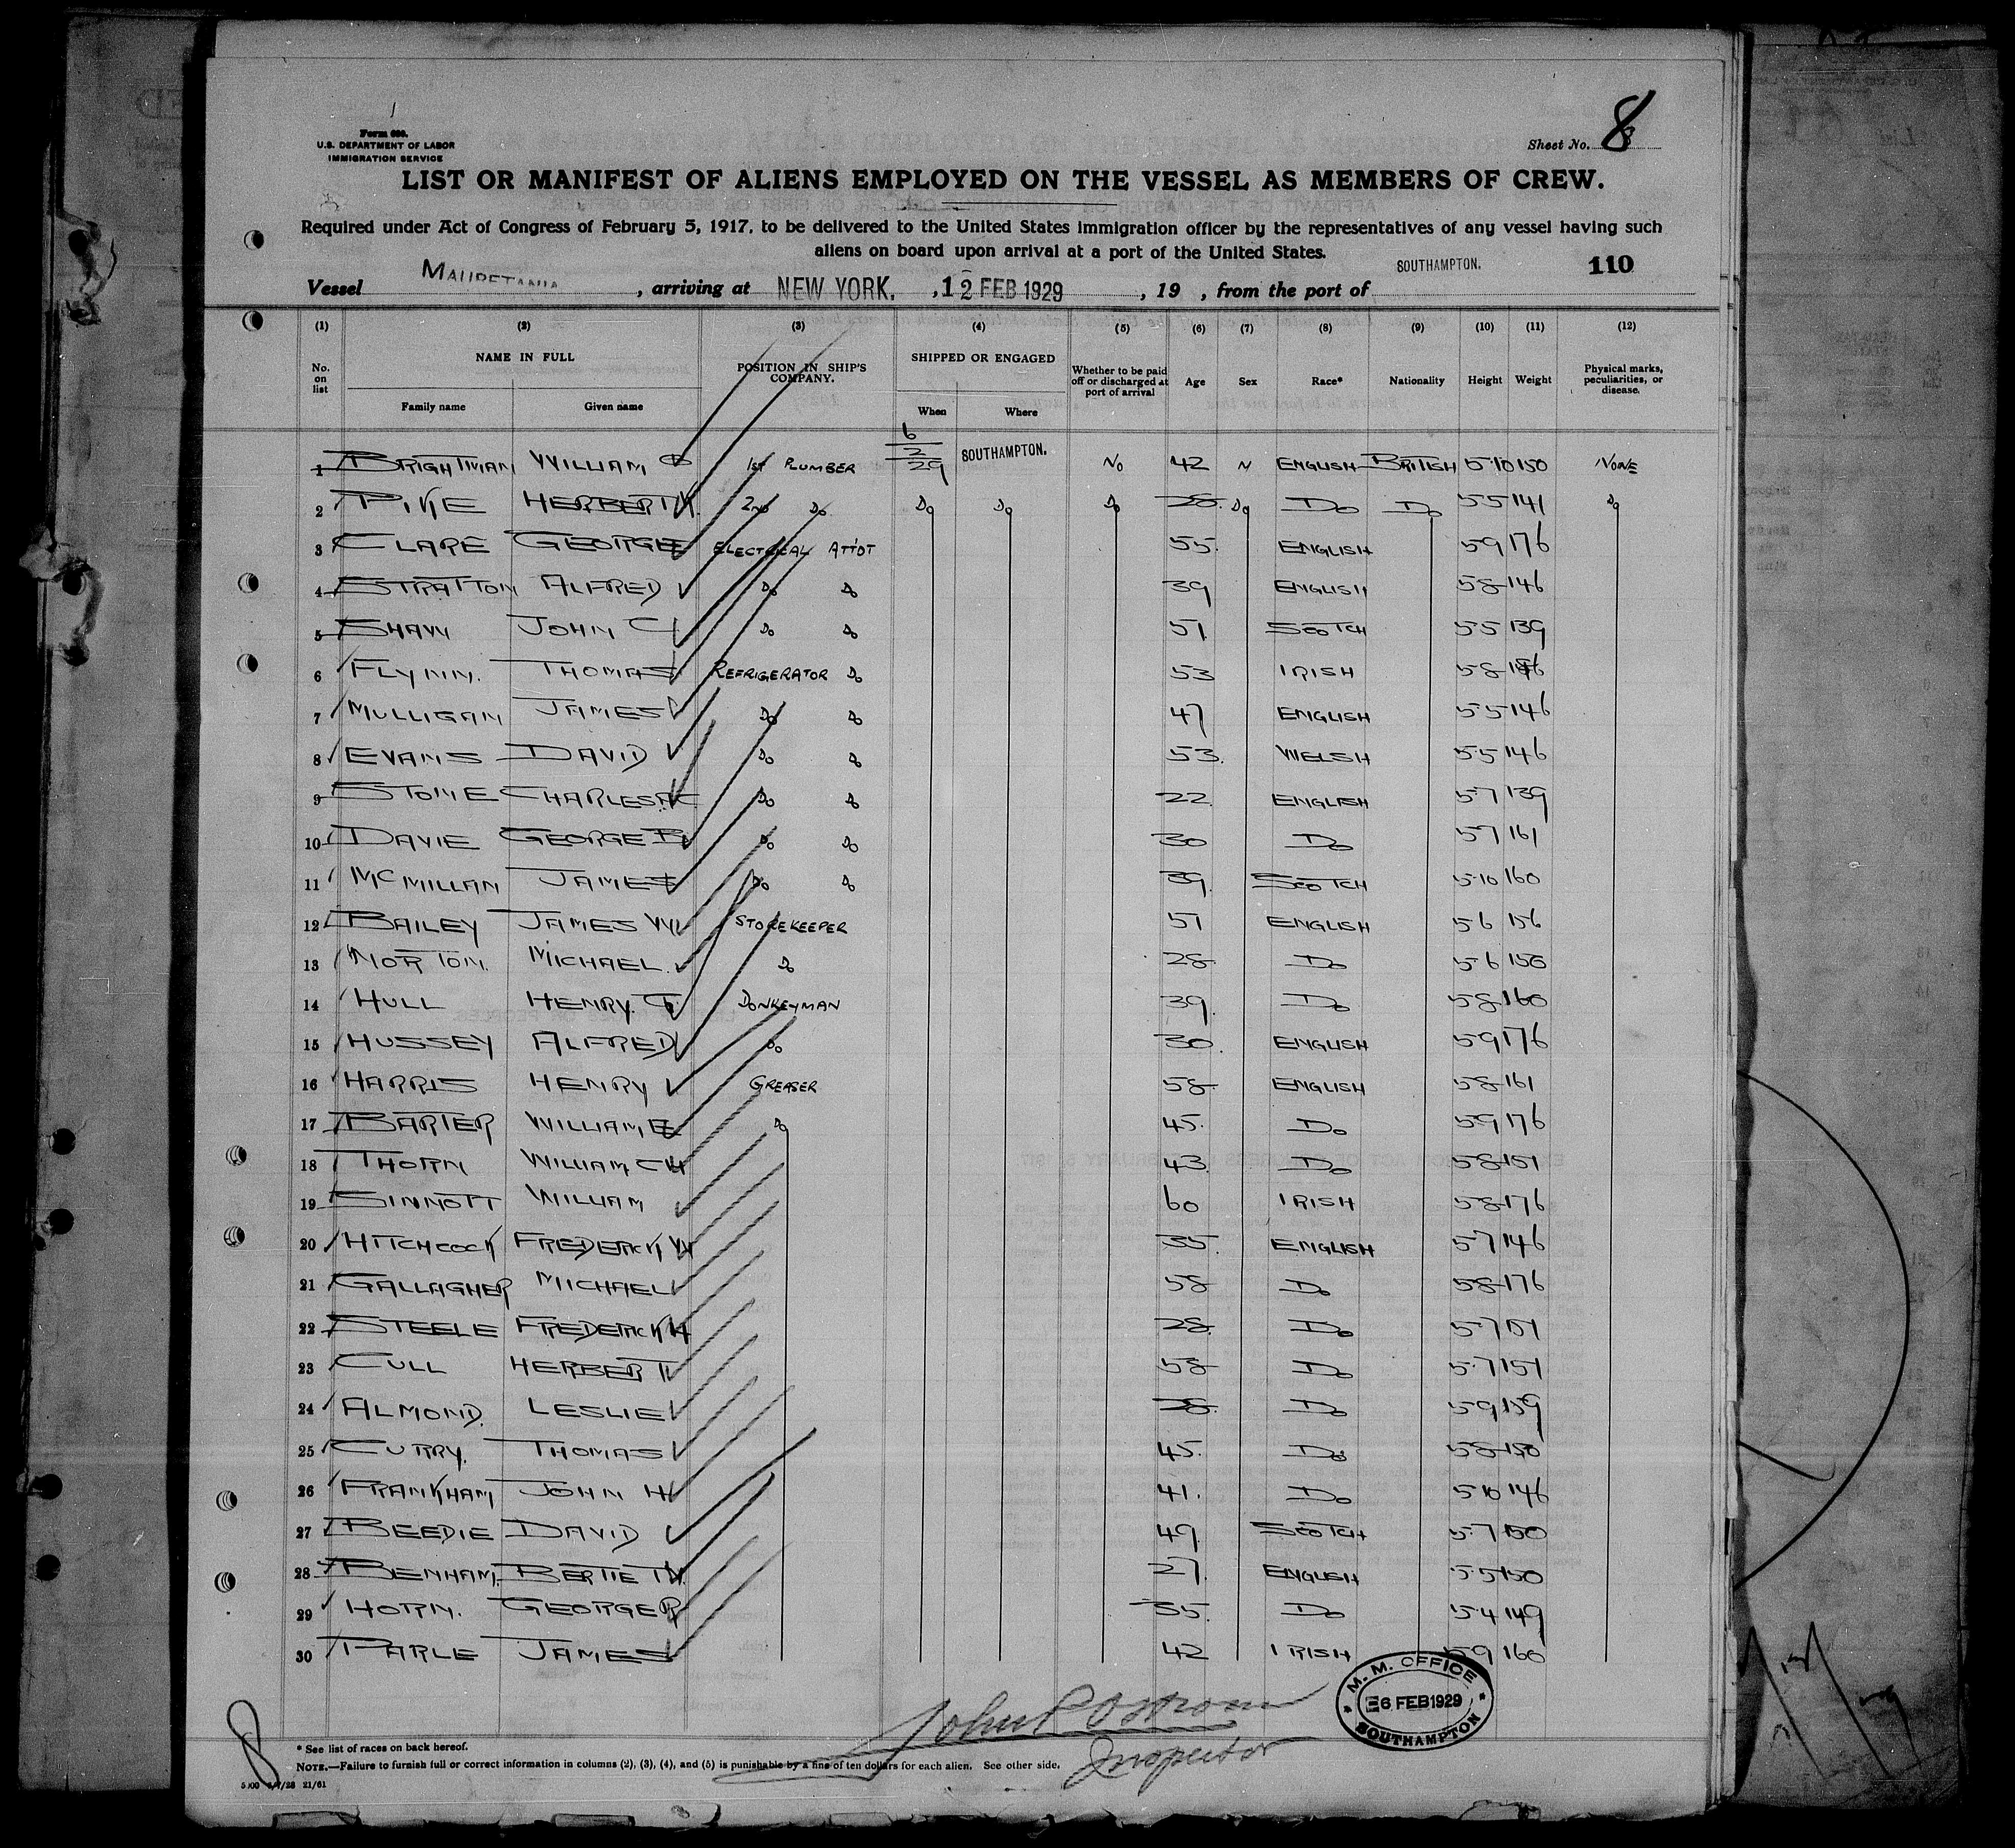 Form 680.
U.S. DEPARTMENT OF LABOR
IMMIGRATION SERVICE
Sheet No. 8
LIST OR MANIFEST OF ALIENS EMPLOYED ON THE VESSEL AS MEMBERS OF CREW.
Required under Act of Congress of February 5, 1917, to be delivered to the United States immigration officer by the representatives of any vessel having such
aliens on board upon arrival at a port of the United States.
110
Vessel MAURETANIA, arriving at NEW YORK, 12 FEB 1929, 19 , from the port of SOUTHAMPTON.
(1) (2) (3) (4) (5) (6) (7) (8) (9) (10) (11) (12)
No. on list NAME IN FULL Family name Given name POSITION IN SHIP'S COMPANY. SHIPPED OR ENGAGED When Where Whether to be paid off or discharged at port of arrival Age Sex Race* Nationality Height Weight Physical marks, peculiarities, or disease.
1 BRIGHTMAN WILLIAM 1ST PLUMBER 6/2/29 SOUTHAMPTON. NO 42 M ENGLISH BRITISH 5·10 150 NONE
2 PIKE HERBERT 2ND DO DO DO DO 28 DO DO DO 5 5 141 DO
3 CLARE GEORGE ELECTRICAL ATTDT 55 ENGLISH 5 9 176
4 STRATTON ALFRED DO DO 39 ENGLISH 5 8 146
5 SHAW JOHN DO DO 51 SCOTCH 5 5 139
6 FLYNN. THOMAS REFRIGERATOR DO 53 IRISH 5 8
7 MULLIGAN JAMES DO DO 47 ENGLISH 5 5 146
8 EVANS DAVID DO DO 53 WELSH 5 5 146
9 STONE CHARLES DO DO 22 ENGLISH 5 7 139
10 DAVIE GEORGE B DO DO 30 DO 5 7 161
11 MCMILLAN JAMES DO DO 39 SCOTCH 5·10 160
12 BAILEY JAMES W STOREKEEPER 51 ENGLISH 5 6 156
13 MORTON. MICHAEL. DO 28 DO 5 6 150
14 HULL HENRY. DONKEYMAN 39 DO 5 8 160
15 HUSSEY ALFRED DO 30 ENGLISH 5 9 176
16 HARRIS HENRY GREASER 58 ENGLISH 5 8 161
17 BARTER WILLIAM E DO 45 DO 5 9 176
18 THORN WILLIAM C H 43 DO 5 8 151
19 SINNOTT WILLIAM 60 IRISH 5 8 176
20 HITCHCOCK FREDERICK W 35 ENGLISH 5 7 146
21 GALLAGHER MICHAEL 58 DO 5 8 176
22 STEELE FREDERICK H 28 DO 5 7 151
23 CULL HERBERT 58 DO 5·7 151
24 ALMOND. LESLIE 28 DO 5 9 159
25 CURRY. THOMAS 45 DO 5 8 150
26 FRANKHAM JOHN H 41 DO 5 10 146
27 BEEDIE DAVID 49 SCOTCH 5·7 150
28 BENHAM. BERTIE 27 ENGLISH 5·5 150
29 HORN. GEORGE R 35 DO 5 4 149
30 PARLE JAMES 42 IRISH 5 9 160
M. M. OFFICE
6 FEB 1929
SOUTHAMPTON
John P Ostrom
Inspector
8
* See list of races on back hereof.
NOTE.—Failure to furnish full or correct information in columns (2), (3), (4), and (5) is punishable by a fine of ten dollars for each alien. See other side.
21/61